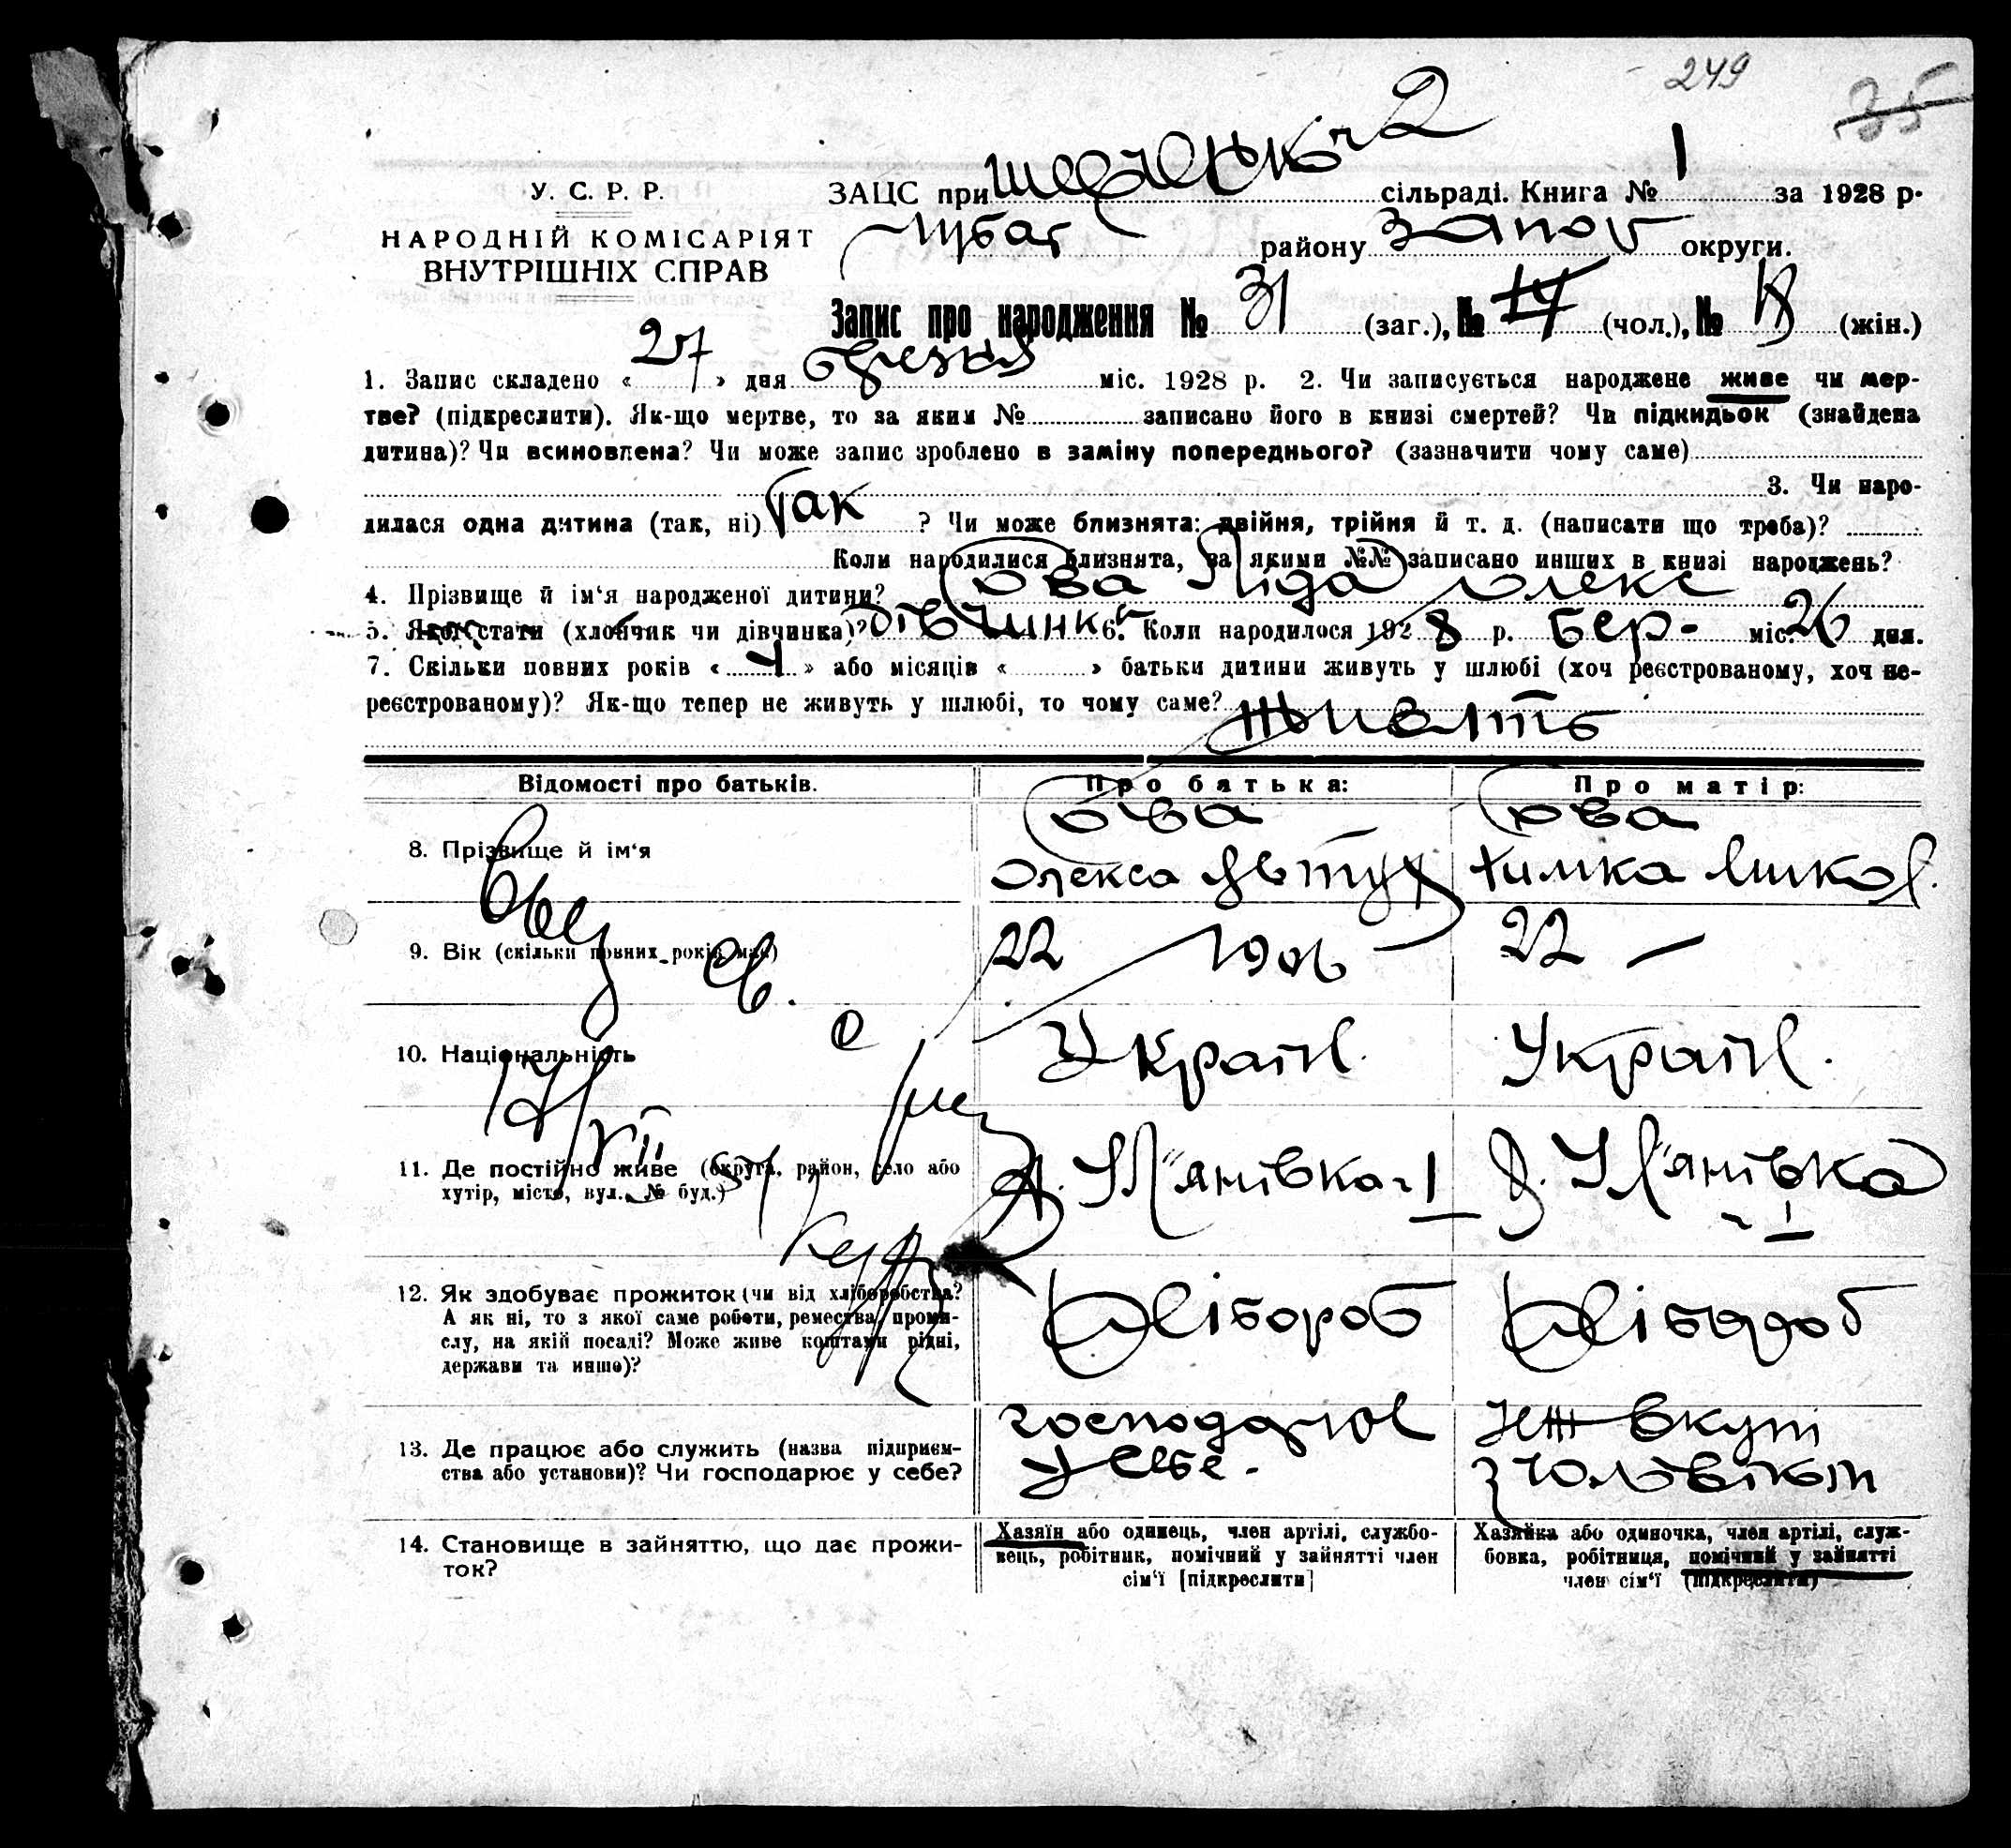 249
35
У. С. Р. Р.
НАРОДНІЙ КОМІСАРІЯТ
ВНУТРІШНІХ СПРАВ
ЗАЦС при 2 сільраді. Книга № 1 за 1928 р.
району Запор округи.
Запис про народження № 31 (заг.), № 14 (чол.), № (жін.)
1. Запис складено « 27 » дня березня міс. 1928 р. 2. Чи записується народжене живе чи мер-
тве? (підкреслити). Як-що мертве, то за яким № записано його в книзі смертей? Чи підкидьок (знайдена
дитина)? Чи всиновлена? Чи може запис зроблено в заміну попереднього? (зазначити чому саме)
3. Чи наро-
дилася одна дитина (так, ні) Так ? Чи може близнята: двійня, трійня й т. д. (написати що треба)?
Коли народилися близнята, за якими №№ записано инших в книзі народжень?
4. Прізвище й ім'я народженої дитини? Сова Ліда Олекс
5. Якої стати (хлопчик чи дівчинка)? дівчинка 6. Коли народилося 1928 р. Бер- міс. 26 дня.
7. Скільки повних років « 4 » або місяців « » батьки дитини живуть у шлюбі (хоч реєстрованому, хоч не-
реєстрованому)? Як-що тепер не живуть у шлюбі, то чому саме? живуть
Відомості про батьків. Про батька: Про матір:
8. Прізвище й ім'я
Сова Сова
Олекса Химка Миков.
9. Вік (скільки повних років має) 22 1906 22 —
10. Національність Україн. Україн.
11. Де постійно живе (округа, район, село або
хутір, місто, вул. № буд.)
Ул'янівка-1 Ул'янівка
- 1
12. Як здобуває прожиток (чи від хліборобства?
А як ні, то з якої саме роботи, ремества, проми-
слу, на якій посаді? Може живе коштами рідні,
держави та инше)?
Хлібороб Хлібороб
13. Де працює або служить (назва підприєм-
ства або установи)? Чи господарює у себе?
господарює
у себе. вкупі
з чоловіком
14. Становище в зайняттю, що дає прожи-
ток?
Хазяїн або одинець, член артілі, службо-
вець, робітник, помічний у зайнятті член
сім'ї [підкреслити]
Хазяйка або одиночка, член артілі, служ-
бовка, робітниця, помічний у зайнятті
член сім'ї (підкреслити)